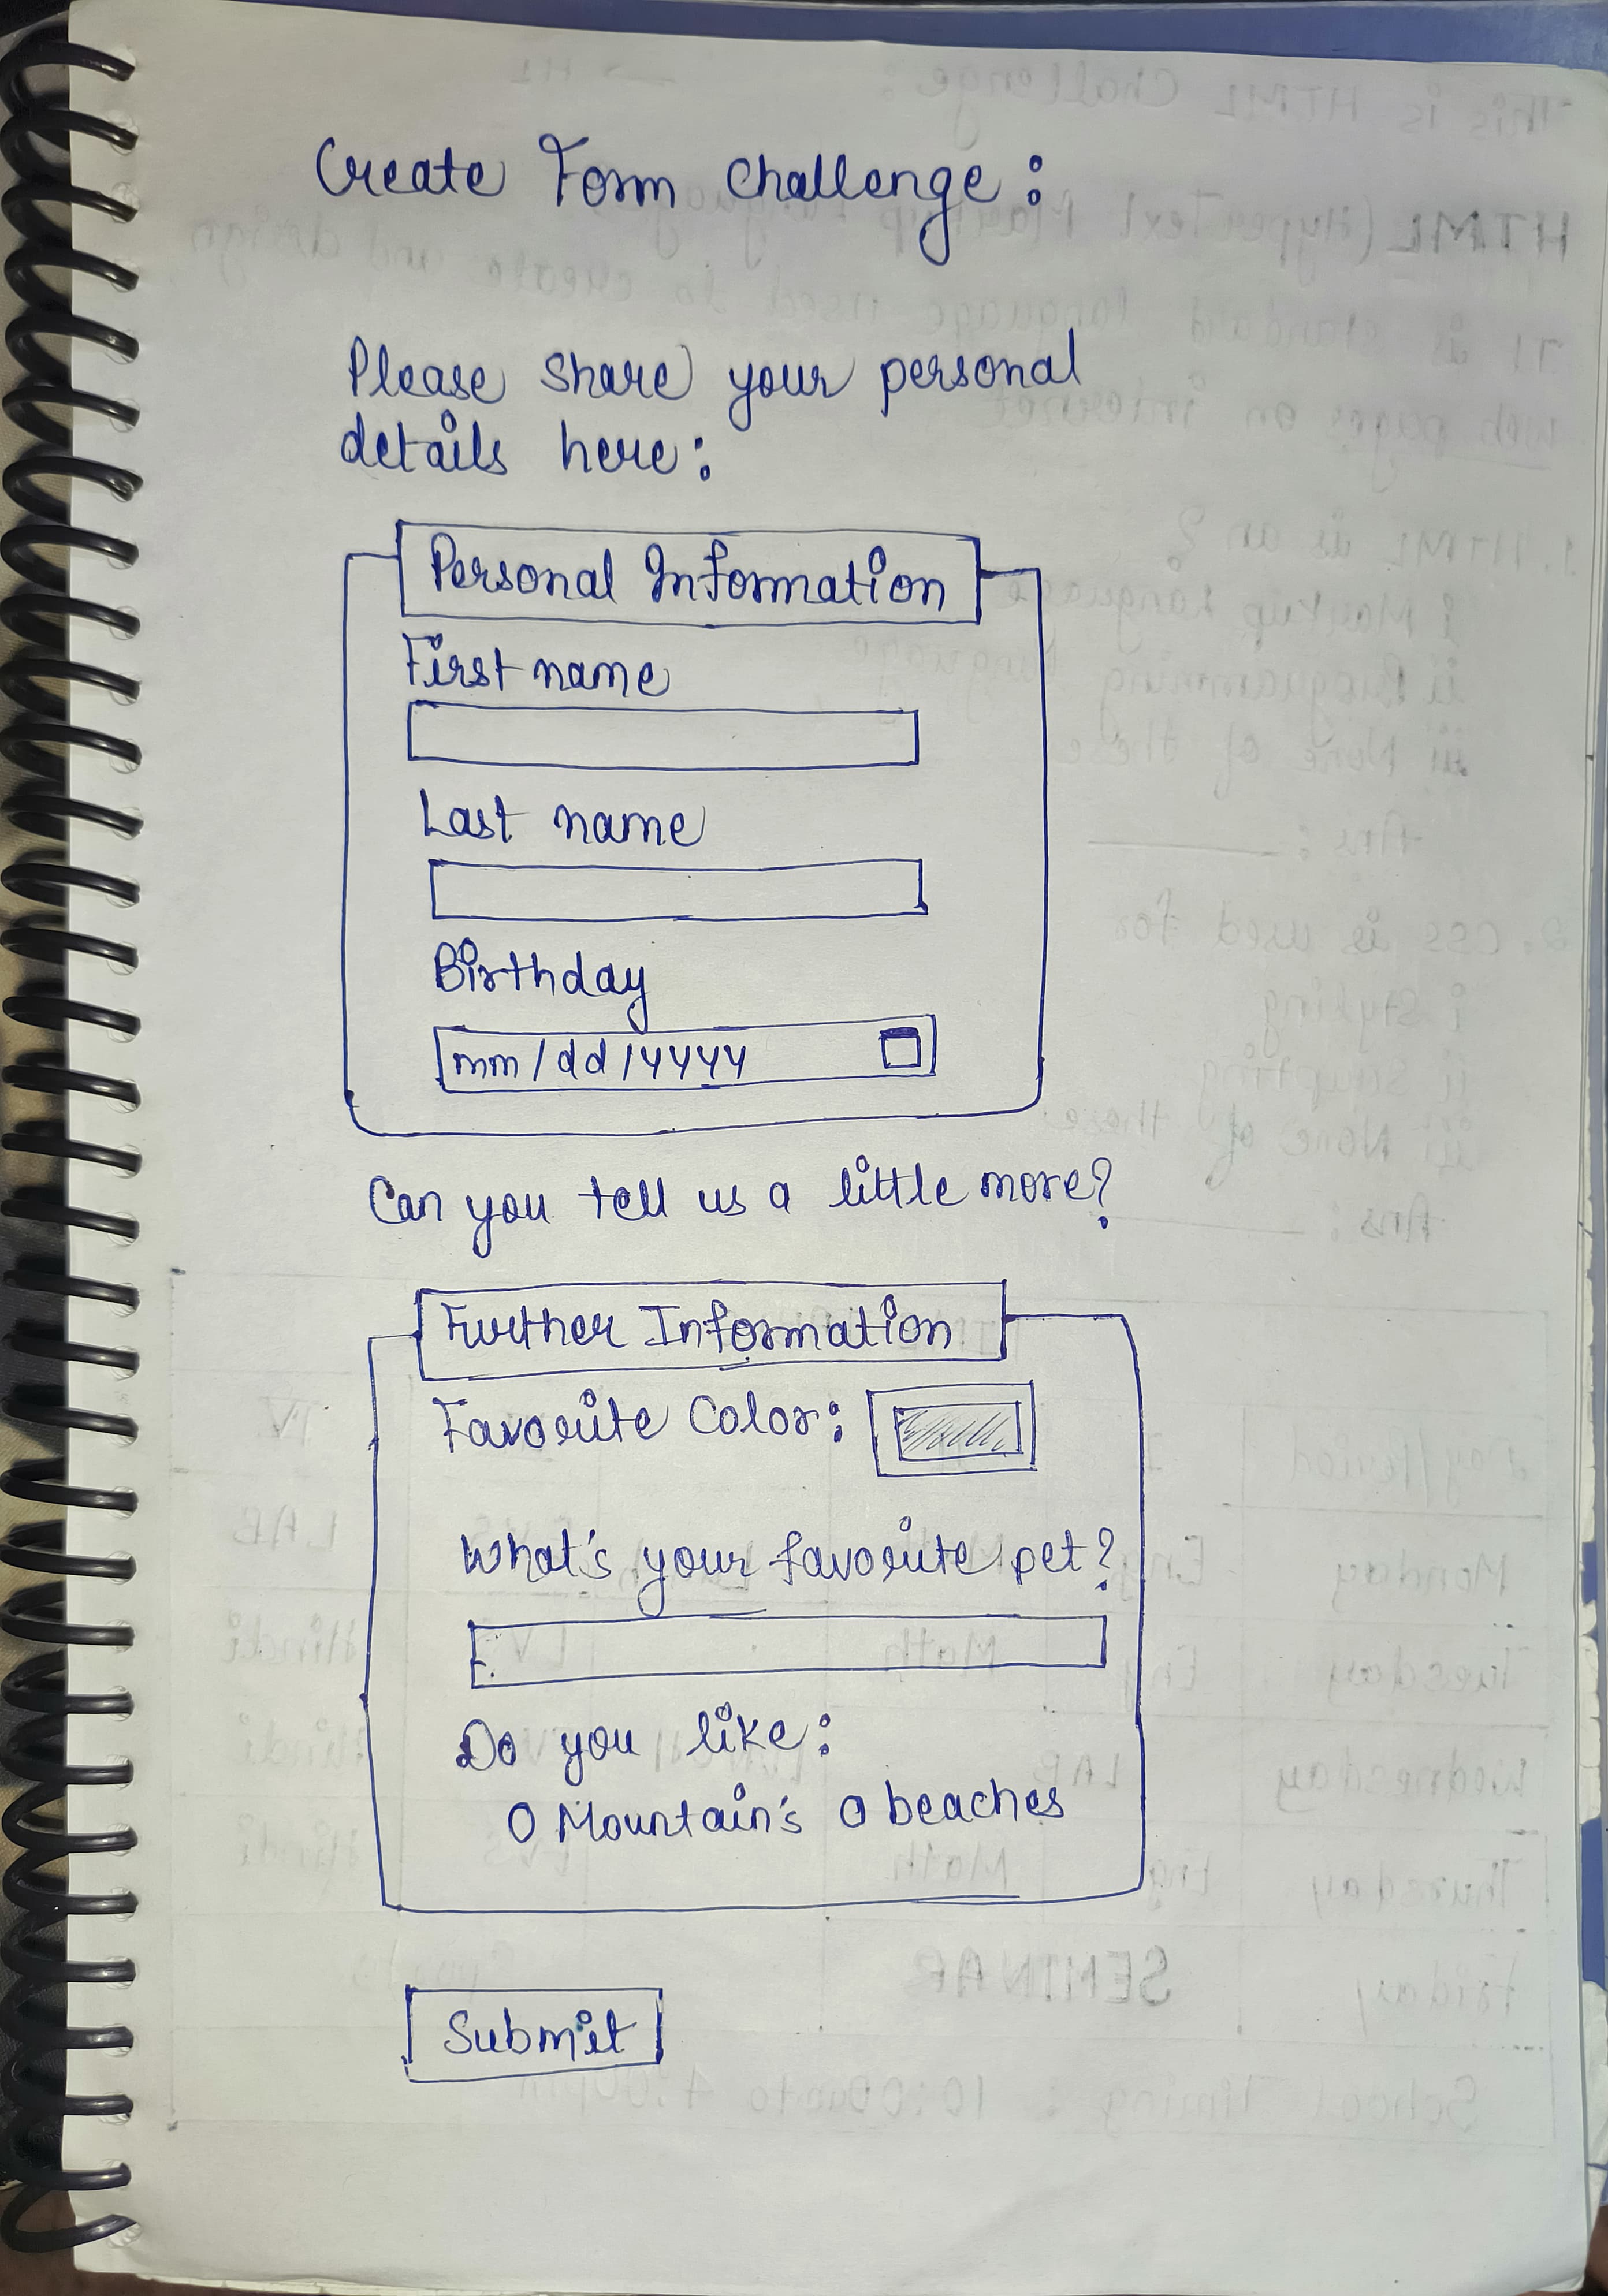 Create Form Challenge:
Please share your personal
details here:
Personal Information
First name
Last name
Birthday
mm/dd/yyyy
Can you tell us a little more?
Further Information
Favorite Color:
What's your favorite pet?
Do you like:
O Mountain's O beaches
Submit